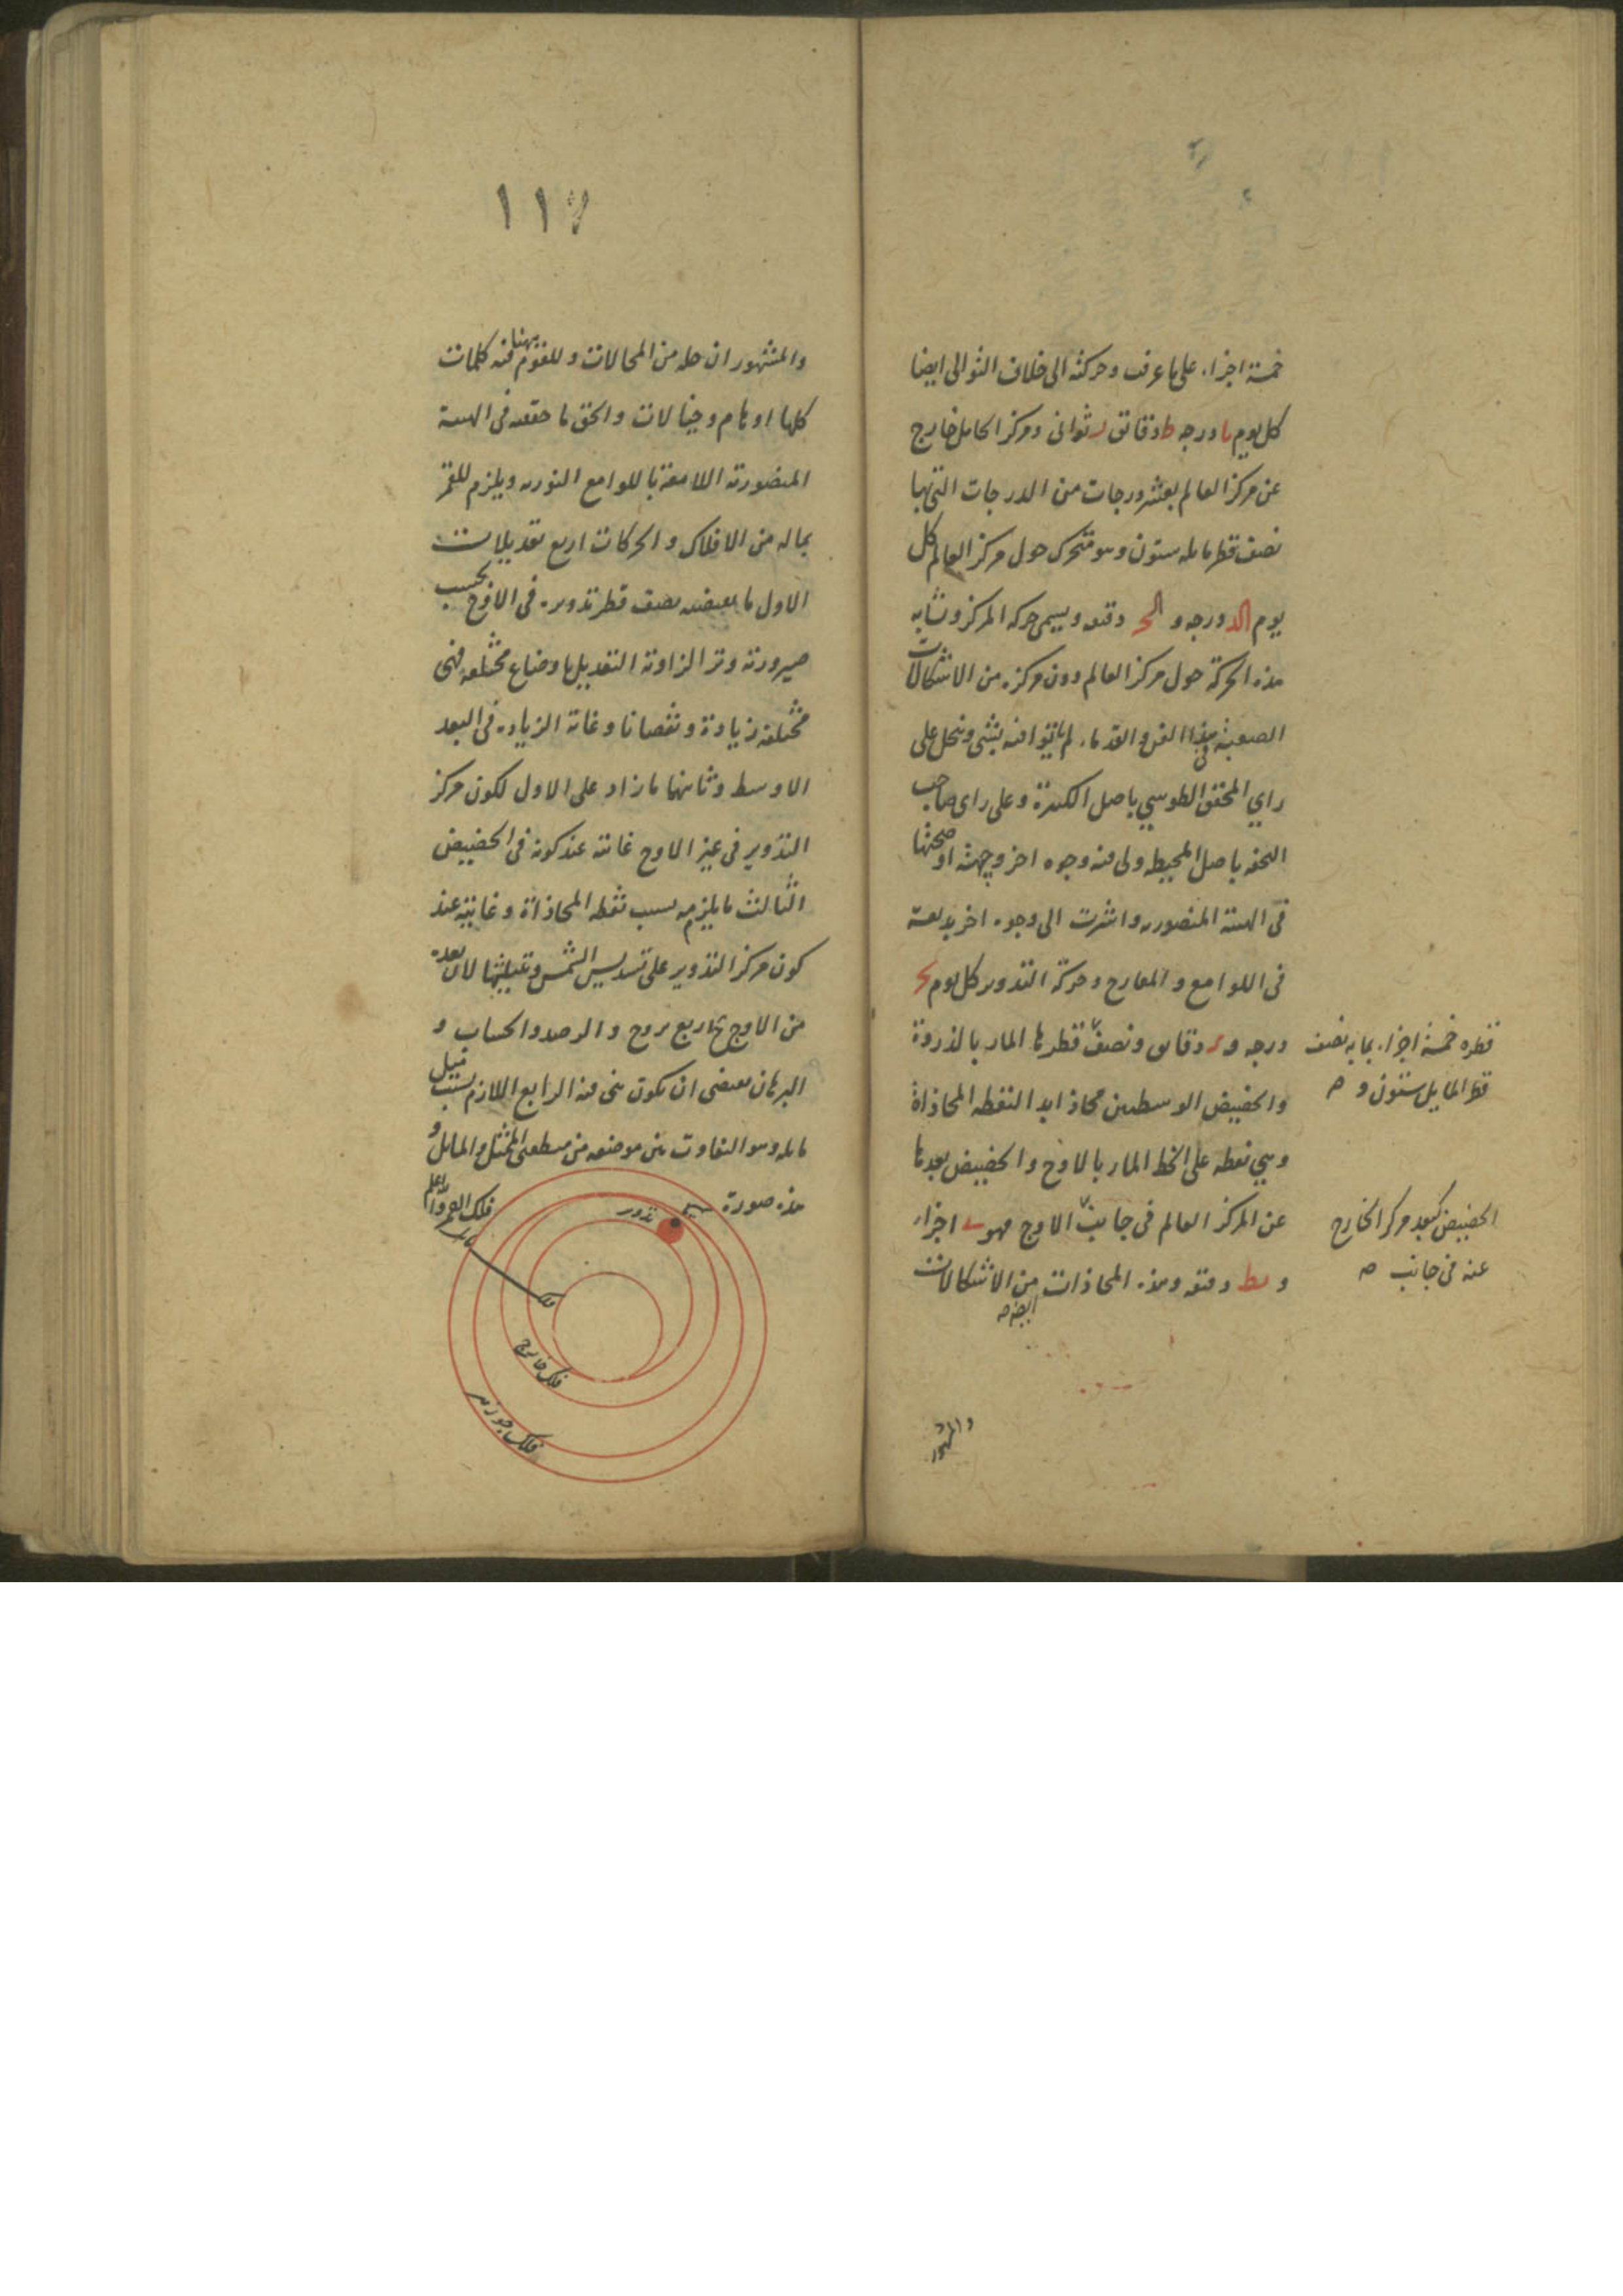 خمسة اجزاء على ما عرفت وحركته الى خلاف التوالى ايضا
كل يوم يا درجه ط دقائق ر ثوانى ومركز الحامل خارج
عن مركز العالم بعشر درجات من الدرجات التى بها
نصف قطر مايله ستون وهو متحرك حول مركز العالم كل
يوم الد درجه و الحر دقيقه ويسمى حركه المركز وتشابه
هذه الحركة حول مركز العالم دون مركزه من الاشكالات
الصعبة فى هذا الفن والقدماء لم ياتوا فيه بشئ وينحل على
راي المحقق الطوسي باصل الكبيرة وعلى راى صاحب
التحفه باصل المحيطه ولى فيه وجوه اخر وجهتها اوضحتها
فى الهيئة المنصوريه واشرت الى وجوه اخر بديعة
فى اللوامع و المعارج وحركة التدوير كل يوم
درجه و دقائق ونصف قطرها المار بالذروة
قطره خمسة اجزاء بما به نصف
قطر المايل ستون و صه
والحضيض الوسطيين محاذ ابدا النقطه المحاذاة
وهي نقطه على الخط المار بالاوج والحضيض بعدها
عن المركز العالم فى جانب الاوج فهو ى اجزاء
الحضيض كبعد مركز الخارج
عنه فى جانب صه
و يط دقيقه وهذه المحاذات من الاشكالات
ايضا صه
والمشهور
١١٧
والمشهور ان حله من المحالات وللقوم ههنا فيه كلمات
كلها اوهام وخيالات والحق ما حققته فى الهيئة
المنصورية اللامعة باللوامع النوريه ويلزم للقمر
بماله من الافلاك والحركات اربع تعديلات
الاول ما يقتضيه نصف قطر تدويره فى الاوج بحسب
صيرورته وتر الزاوية التعديل باوضاع مختلفه فهى
مختلفة زيادة ونقصانا وغاية الزياده فى البعد
الاوسط وثانيها ما زاد على الاول لكون مركز
التدوير فى غير الاوج غايته عند كونه فى الحضيض
الثالث ما يلزمه بسبب نقطه المحاذاة وغايته عند
كون مركز التدوير على تسديس الشمس وتثليثها لان بعده
من الاوج ح اربع بروج والرصد والحساب و
البرهان يقتضى ان يكون هى فيه الرابع اللازم بسبب ميل
مايله وهو التفاوت بين موضعه من منطقتى الممثل والمايل و
هذه صورة
فلك القمر والله اعلم
تدوير
مايل
فلك
فلك خارج
فلك جوزهر